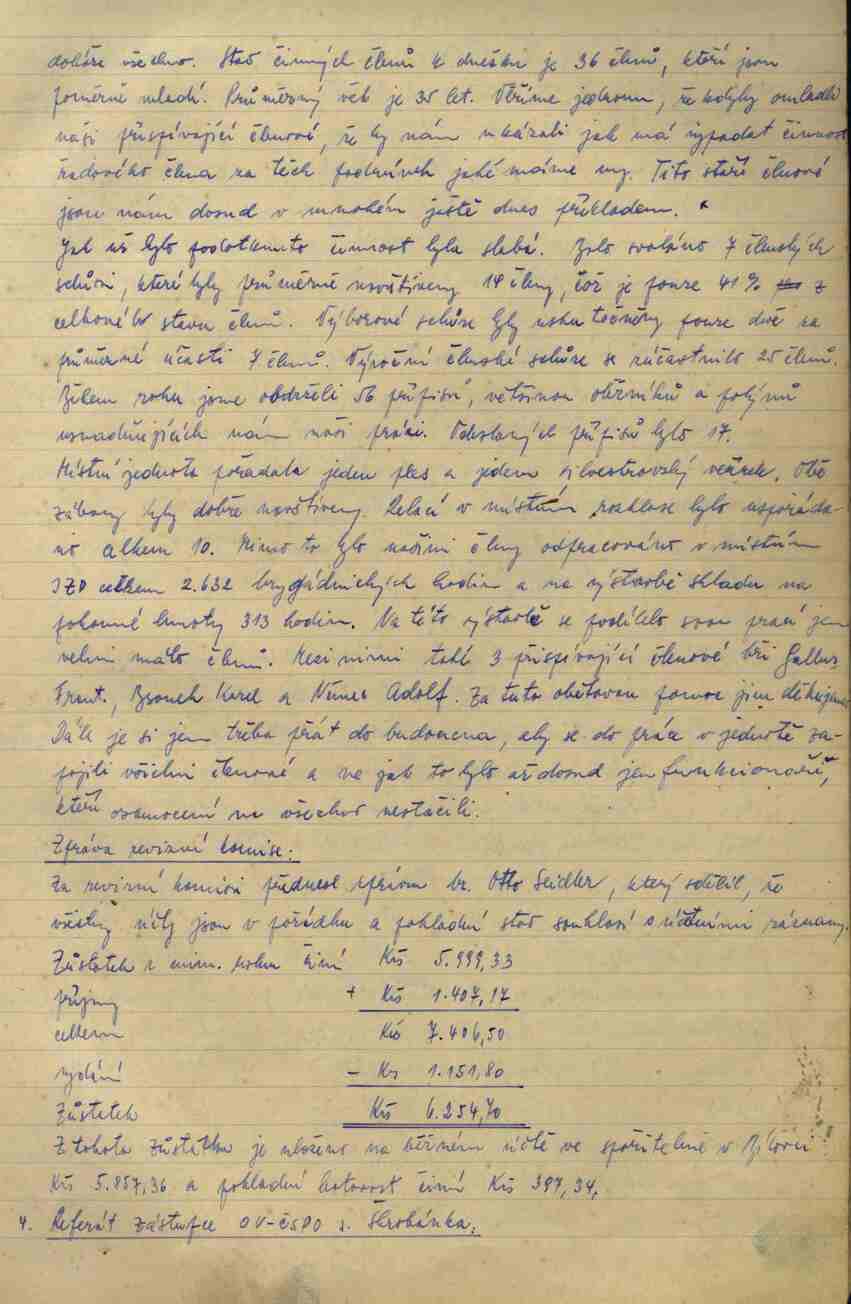 dokáže všechno. Stav činných členů k dnešku je 36 členů, kteří jsou
poměrně mladí. Průměrný věk je 35 let. Věříme jednomu, že kdyby omladli
naši přispívající členové, že by nám ukázali jak má vypadat činnost
řadového člena za těch podmínek jaké máme my. Tito staří členové
jsou nám dosud v mnohém ještě dnes příkladem.
Jak už bylo podotknuto činnost byla slabá. Bylo svoláno 7 členských
schůzí, které byly průměrně navštíveny 14 členy, což je pouze 41% z
celkového stavu členů. Výborové schůze byly uskutečněny pouze dvě za
průměrné účasti 7 členů. Výroční členské schůze se zúčastnilo 25 členů.
Během roku jsme obdrželi 56 přípisů, většinou oběžníků a pokynů
usnadňujících nám naši práci. Odeslaných přípisů bylo 17.
Místní jednota pořádala jeden ples a jeden silvestrovský večírek. Obě
zábavy byly dobře navštíveny. Relací v místním rozhlase bylo uspořádá-
no celkem 10. Mimo to bylo našimi členy odpracováno v místním
JZD celkem 2.632 brygádnických hodin a na výstavbě skladu na
pohonné hmoty 313 hodin. Na této výstavbě se podílelo svou prací jen
velmi málo členů. Mezi nimi také 3 přispívající členové bři Gallus
Frant., Karel a Němec Adolf. Za tuto obětavou pomoc jim děkujeme.
Dále je si jen třeba přát do budoucna, aby se do práce v jednotě za-
pojili všichni členové a ne jak to bylo až dosud jen funkcionáři,
kteří osamoceni na všechno nestačili.
Zpráva revizní komise:
Za revizní komisi přednesl zprávu br. Otto Seidler, který sdělil, že
všechny účty jsou v pořádku a pokladní stav souhlasí s účetními záznamy.
Zůstatek z min. roku činí Kčs 5.999,33
příjmy + Kčs 1.407,17
celkem Kčs 7.406,50
vydání - Kčs 1.151,80
Zůstatek Kčs 6.254,70
Z tohoto zůstatku je uloženo na běžném účtě ve spořitelně v Bílovci
Kčs 5.857,36 a pokladní hotovost činí Kčs 397,34.
4. Referát zástupce OV-ČSPO s. Skrobánka.